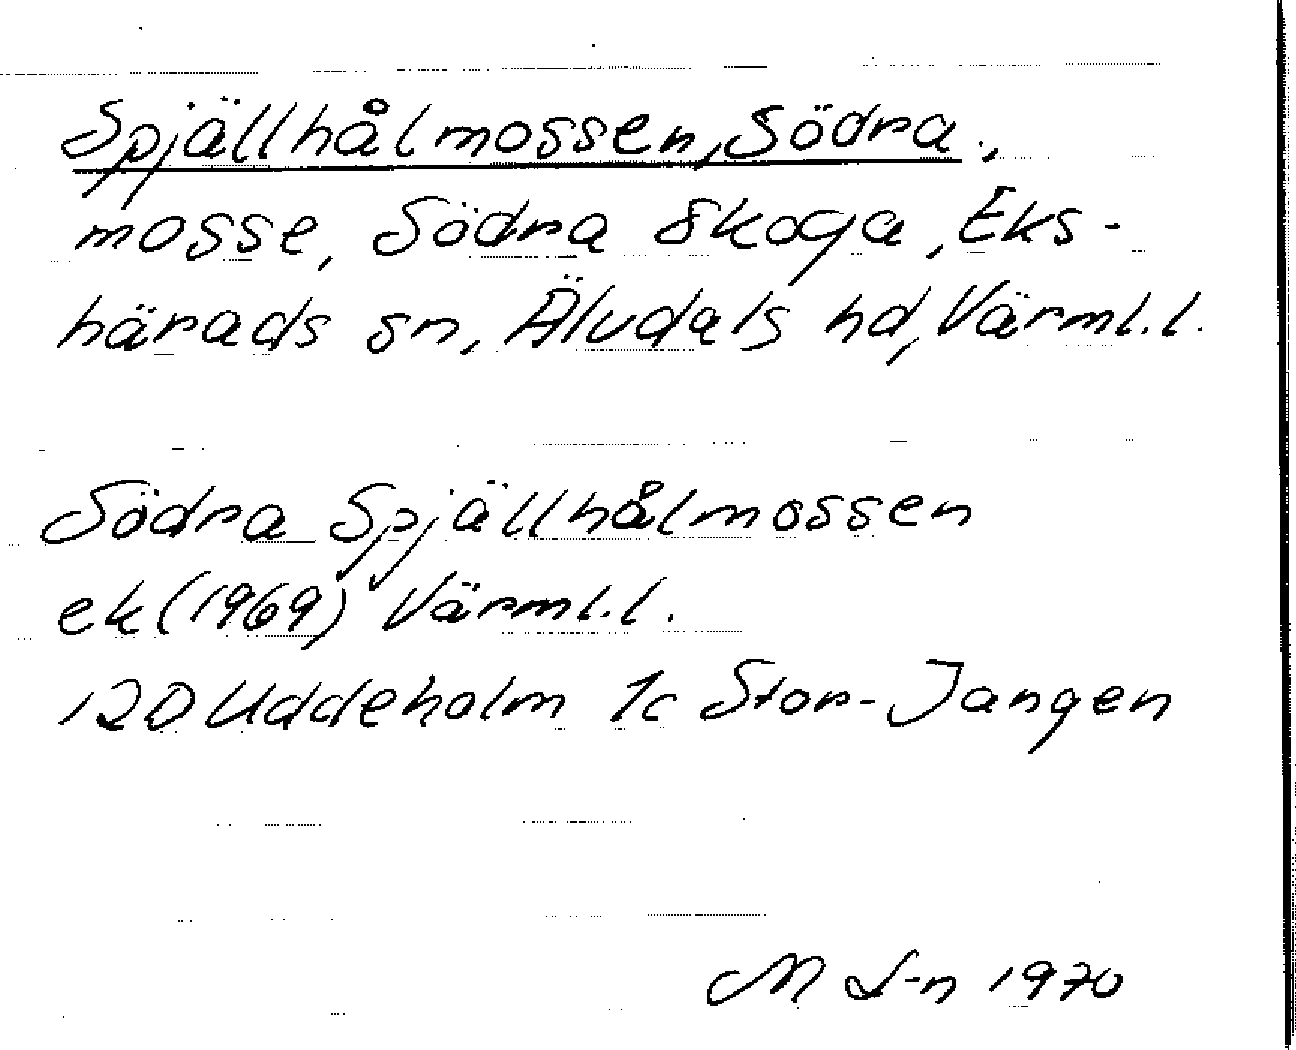 Spjällhålmossen, Södra.,
mosse, Södra Skoga, Eks-
härads sn, Älvdals hd, Värml.l.
Södra Spjällhålmossen
ek (1969) Värml.l.
12D Uddeholm 1c Stor-Jangen
M L-n 1970